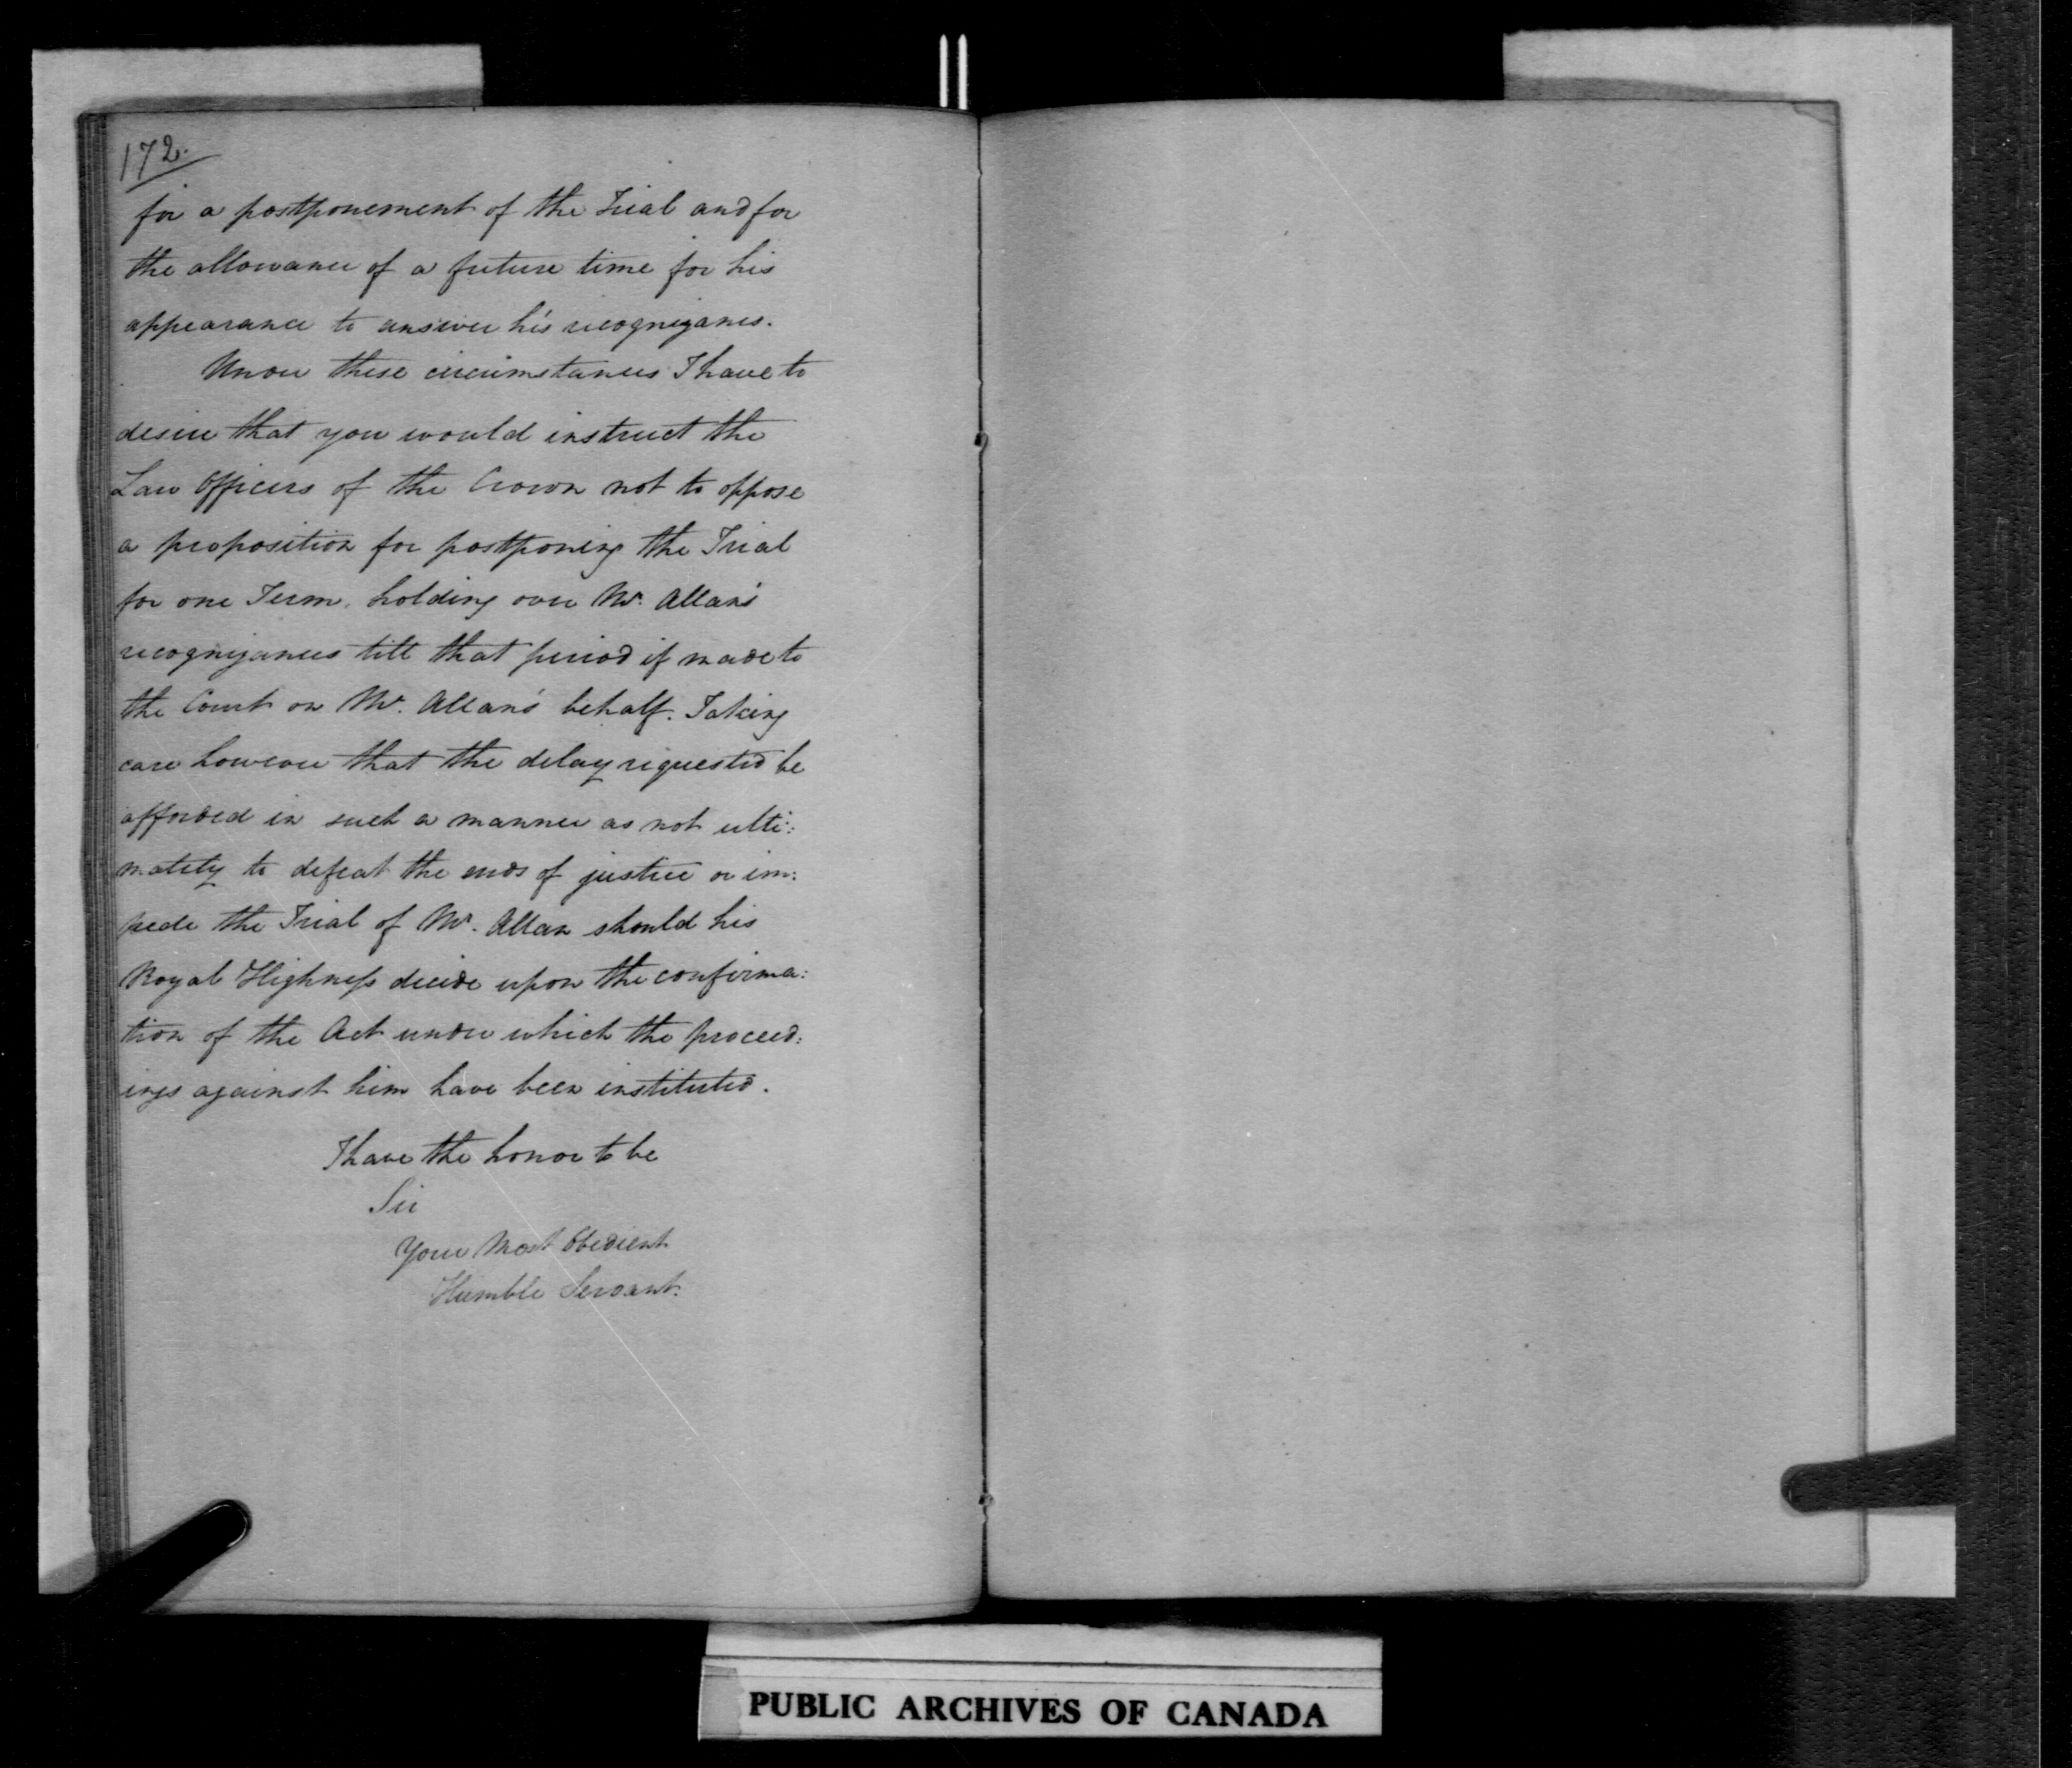 172.
for a postponement of the Trial and for
the allowance of a future time for his
appearance to answer his recognizances.
Under these circumstances I have to
desire that you would instruct the
Law Officers of the Crown not to oppose
a proposition for postponing the Trial
for one Term, holding over Mr. Allan's
recognizances till that period if made to
the Court on Mr. Allan's behalf. Taking
care however that the delay requested be
afforded in such a manner as not ulti:
mately to defeat the ends of justice or im:
pede the Trial of Mr. Allan should his
Royal Highness decide upon the confirma:
tion of the Act under which the proceed:
ings against him have been instituted.
I have the honor to be
Sir
Your Most Obedient
Humble Servant.
PUBLIC ARCHIVES OF CANADA